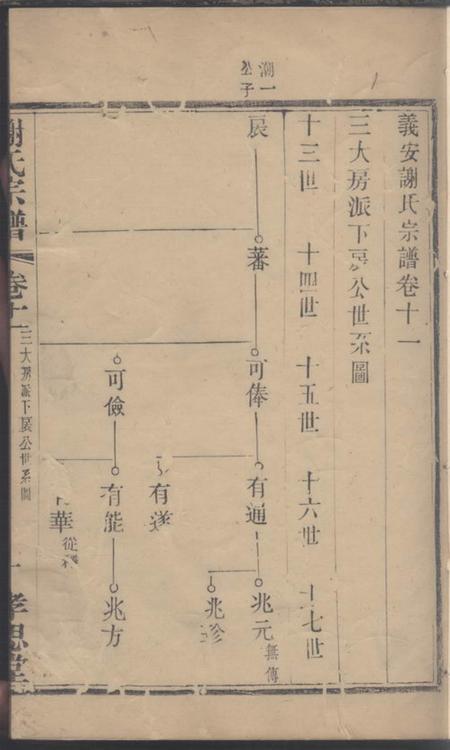 義安謝氏宗譜卷十一
三大房派下扆公世系圖
十三世 十四世 十五世 十六世 十七世
潮一公子
扆 蕃 可俸 有通 兆元 無傳
兆珍
有遂
可儉 有能 兆方
華
謝氏宗譜 卷十一 三大房派下扆公世系圖 一 孝思堂